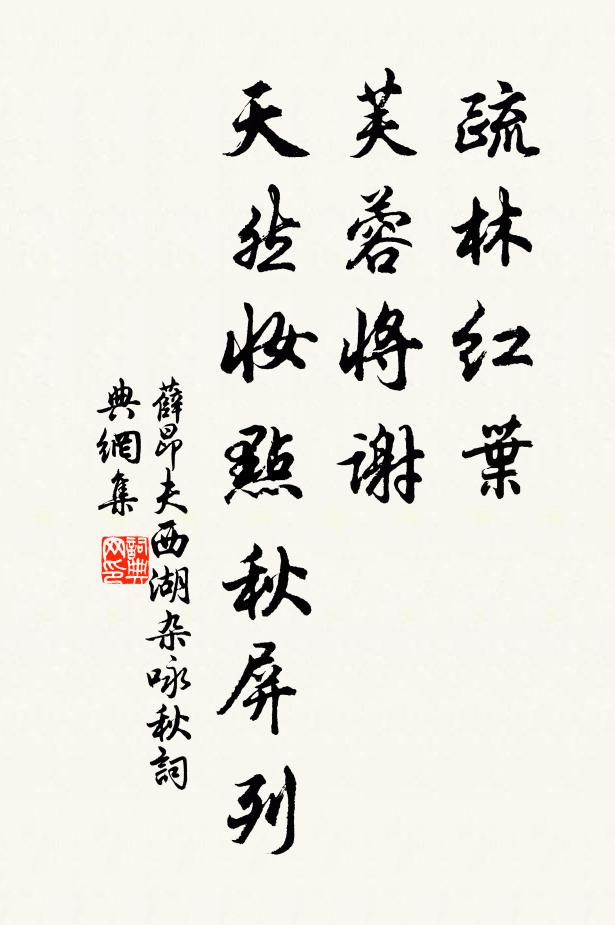 疏林红葉
芙蓉將谢
天然妆點秋屏列
薛昂夫西湖杂咏秋詞
典網集
詞典网印